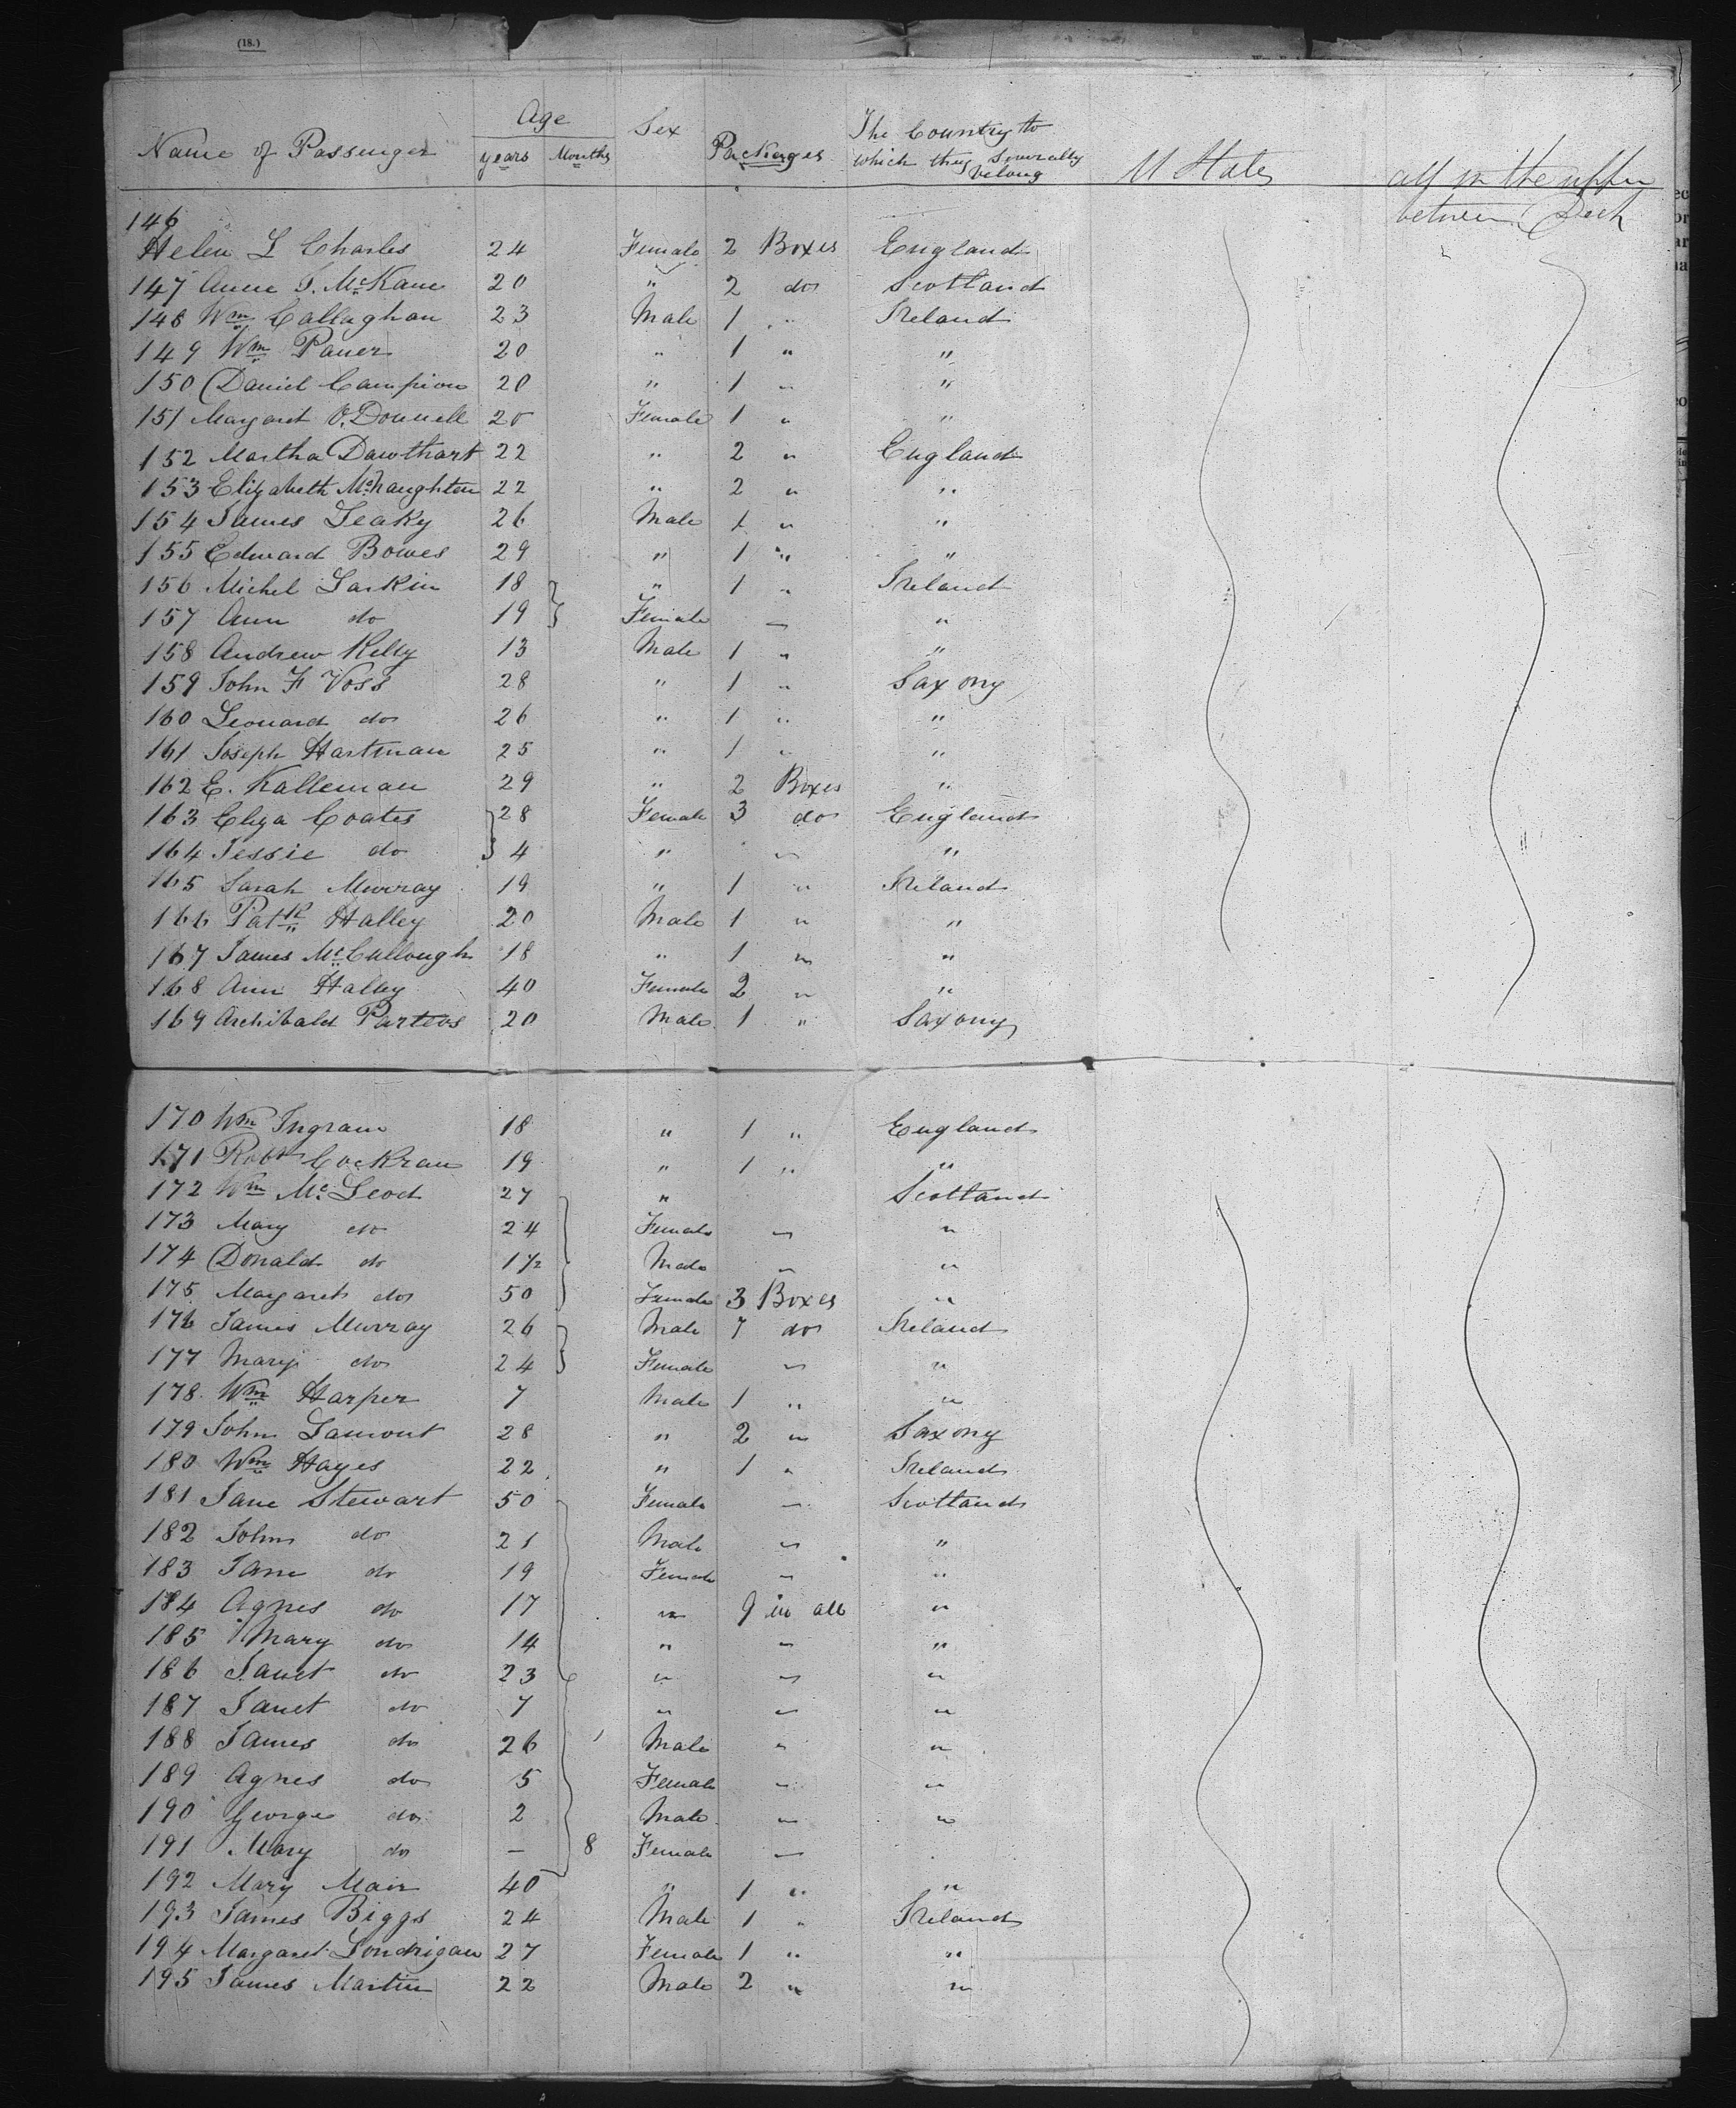 (18.)
Name of Passenger Age years Months Sex Packages The Country to which they severally belong U States all in the upper between Deck
146
Helen L Charles 24 Female 2 Boxes England
147 Anne J. McKane 20 " 2 do Scotland
148 Wm Callaghan 23 Male 1 " Ireland
149 Wm Pauer 20 " 1 " "
150 Daniel Campion 20 " 1 " "
151 Margaret O'Donnell 20 Female 1 " "
152 Martha Dawthart 22 " 2 " England
153 Elizabeth McNaughton 22 " 2 " "
154 James Leaky 26 Male 1 " "
155 Edward Bowes 29 " 1 " "
156 Michel Larkin 18 " 1 " Ireland
157 Ann do 19 Female " "
158 Andrew Kelly 13 Male 1 " "
159 John F Voss 28 " 1 " Saxony
160 Leonard do 26 " 1 " "
161 Joseph Hartman 25 " 1 " "
162 E. Kalleman 29 " 2 Boxes "
163 Eliza Coates 28 Female 3 do England
164 Jessie do 4 " " "
165 Sarah Murray 19 " 1 " Ireland
166 Patk Halley 20 Male 1 " "
167 James McCullough 18 " 1 " "
168 Ann Halley 40 Female 2 " "
169 Archibald Parteos 20 Male 1 " Saxony
170 Wm Ingram 18 " 1 " England
171 Robt Cockran 19 " 1 " "
172 Wm McLeod 27 " Scotland
173 Mary do 24 Female " "
174 Donald do 1½ Male " "
175 Margaret do 50 Female 3 Boxes "
176 James Murray 26 Male 7 do Ireland
177 Mary do 24 Female " "
178 Wm Harper 7 Male 1 " "
179 John Lamont 28 " 2 " Saxony
180 Wm Hayes 22 " 1 " Ireland
181 Jane Stewart 50 Female " Scotland
182 John do 21 Male " "
183 Jane do 19 Female " "
184 Agnes do 17 " 9 in all "
185 Mary do 14 " " "
186 Janet do 23 " " "
187 Janet do 7 " " "
188 James do 26 Male " "
189 Agnes do 5 Female " "
190 George do 2 Male " "
191 Mary do – 8 Female "
192 Mary Mair 40 " 1 " "
193 James Biggs 24 Male 1 " Ireland
194 Margaret Londrigan 27 Female 1 " "
195 James Martin 22 Male 2 " "